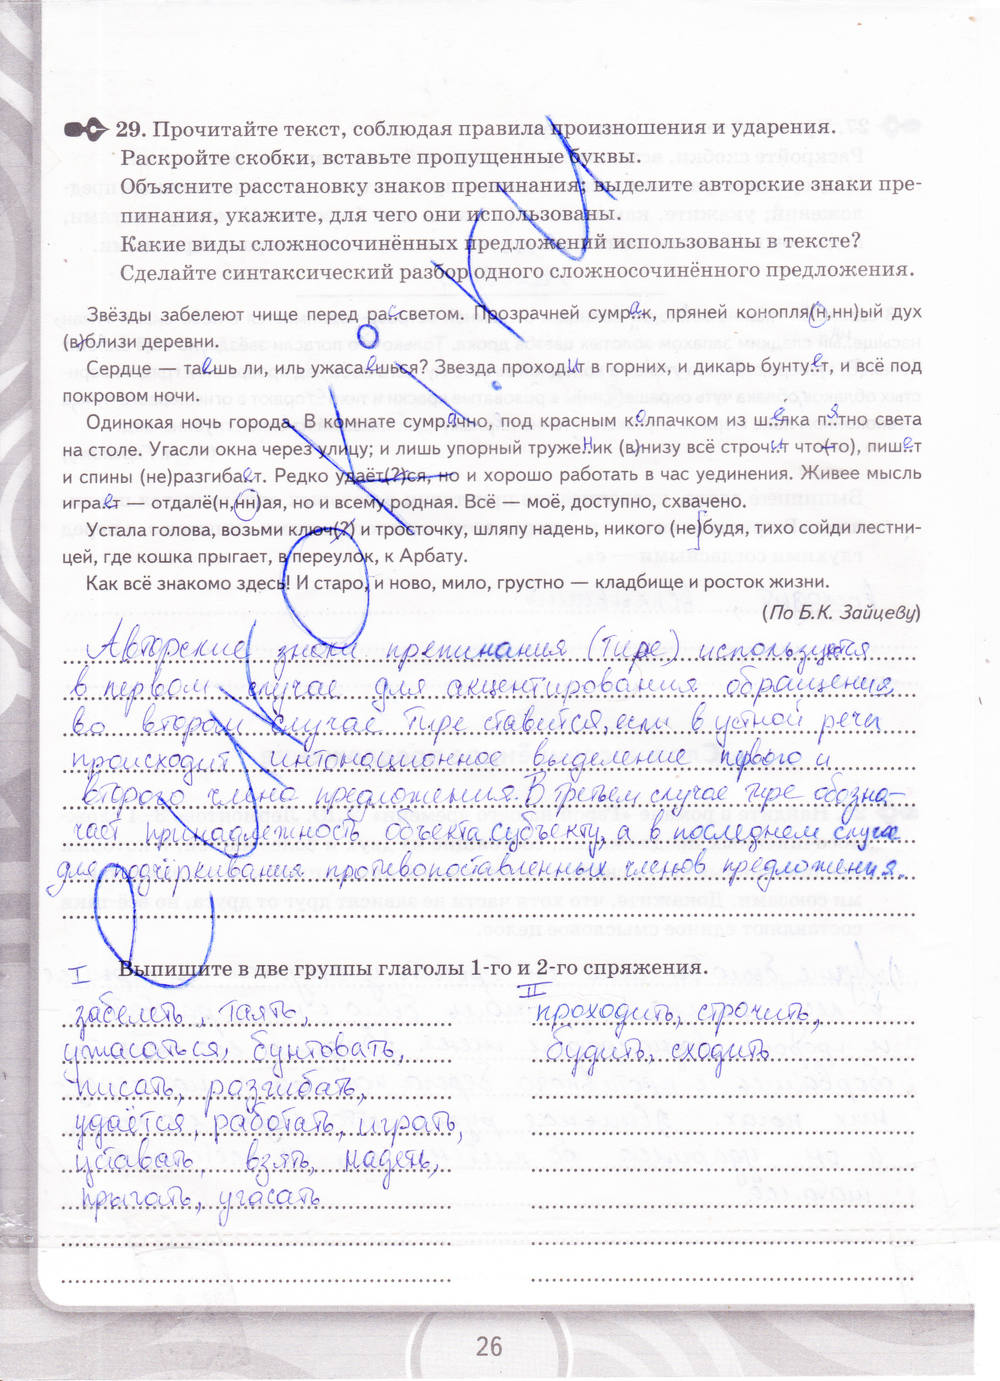 29. Прочитайте текст, соблюдая правила произношения и ударения.
Раскройте скобки, вставьте пропущенные буквы.
Объясните расстановку знаков препинания; выделите авторские знаки пре-
пинания, укажите, для чего они использованы.
Какие виды сложносочинённых предложений использованы в тексте?
Сделайте синтаксический разбор одного сложносочинённого предложения.
Звёзды забелеют чище перед рассветом. Прозрачней сумрак, пряней конопля(н,нн)ый дух
(в)близи деревни.
Сердце — таешь ли, иль ужасаешься? Звезда проходит в горних, и дикарь бунтует, и всё под
покровом ночи.
Одинокая ночь города. В комнате сумрачно, под красным колпачком из шёлка пятно света
на столе. Угасли окна через улицу; и лишь упорный труженик (в)низу всё строчит что(то), пишет
и спины (не)разгибает. Редко удаёт(?)ся, но и хорошо работать в час уединения. Живее мысль
играет — отдалё(н,нн)ая, но и всему родная. Всё — моё, доступно, схвачено.
Устала голова, возьми ключ(?) и тросточку, шляпу надень, никого (не)будя, тихо сойди лестни-
цей, где кошка прыгает, в переулок, к Арбату.
Как всё знакомо здесь! И старо, и ново, мило, грустно — кладбище и росток жизни.
(По Б.К. Зайцеву)
Авторские знаки препинания (тире) используются
в первом случае для акцентирования обращения,
во втором случае тире ставится, если в устной речи
происходит интонационное выделение первого и
второго члена предложения. В третьем случае тире обозна-
чает принадлежность объекта субъекту, а в последнем случае
для подчёркивания противопоставленных членов предложения.
Выпишите в две группы глаголы 1-го и 2-го спряжения.
I
забелеть, таять,
ужасаться, бунтовать,
писать, разгибать,
удаётся, работать, играть,
уставать, взять, надеть,
прыгать, угасать
II
проходить, строчить,
будить, сходить
26